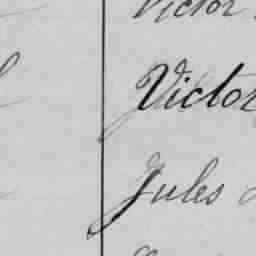 Victor
Victor
Jules